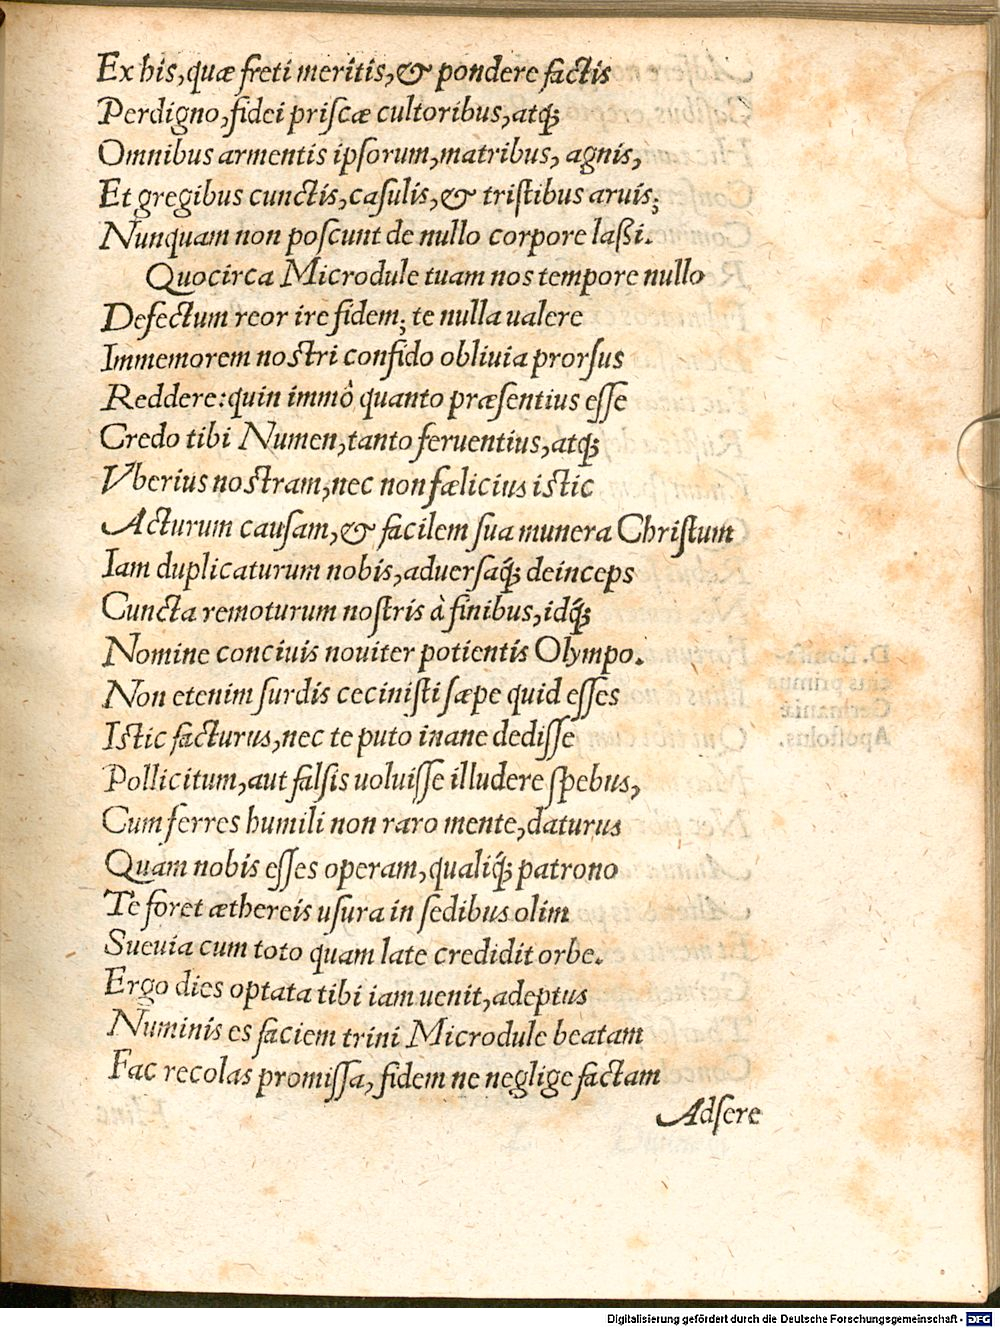 Ex his, quæ freti meritis, & pondere factis
Perdigno, fidei priſcæ cultoribus, atq́;
Omnibus armentis ipſorum, matribus, agnis,
Et gregibus cunctis, caſulis, & triſtibus aruis;
Nunquam non poſcunt de nullo corpore laßi.
Quocirca Microdule tuam nos tempore nullo
Defectum reor ire fidem; te nulla ualere
Immemorem nostri confido obliuia prorſus
Reddere: quin immô quanto præſentius eſſe
Credo tibi Numen, tanto feruentius, atq́;
Vberius nostram, nec non fælicius istic
Acturum cauſam, & facilem ſua munera Chriſtum
Iam duplicaturum nobis, aduerſaq́; deinceps
Cuncta remoturum noſtris à finibus, idq́;
Nomine conciuis nouiter potientis Olympo.
Non etenim ſurdis cecinisti ſæpe quid eſſes
Istic facturus, nec te puto inane dediſſe
Pollicitum, aut falſis uoluiſſe illudere ſpebus,
Cum ferres humili non raro mente, daturus
Quam nobis eſſes operam, qualiq́; patrono
Te foret æthereis uſura in ſedibus olim
Sueuia cum toto quam late credidit orbe.
Ergo dies optata tibi iam uenit, adeptus
Numinis es faciem trini Microdule beatam
Fac recolas promiſſa, fidem ne neglige factam
Adſere
Digitalisierung gefördert durch die Deutsche Forschungsgemeinschaft - DFG